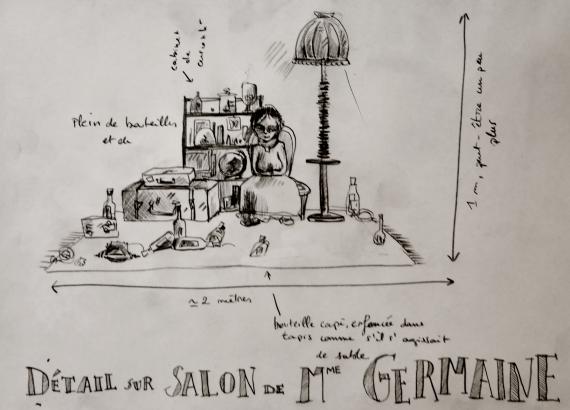 cabinet
de
curiosité
Plein de bouteilles
et de
1 m, peut-être un peu
plus
≈ 2 mètres
bouteille capé, enfoncée dans
tapis comme s'il s'agissait
de sable
DÉTAIL SUR SALON DE MME GERMAINE